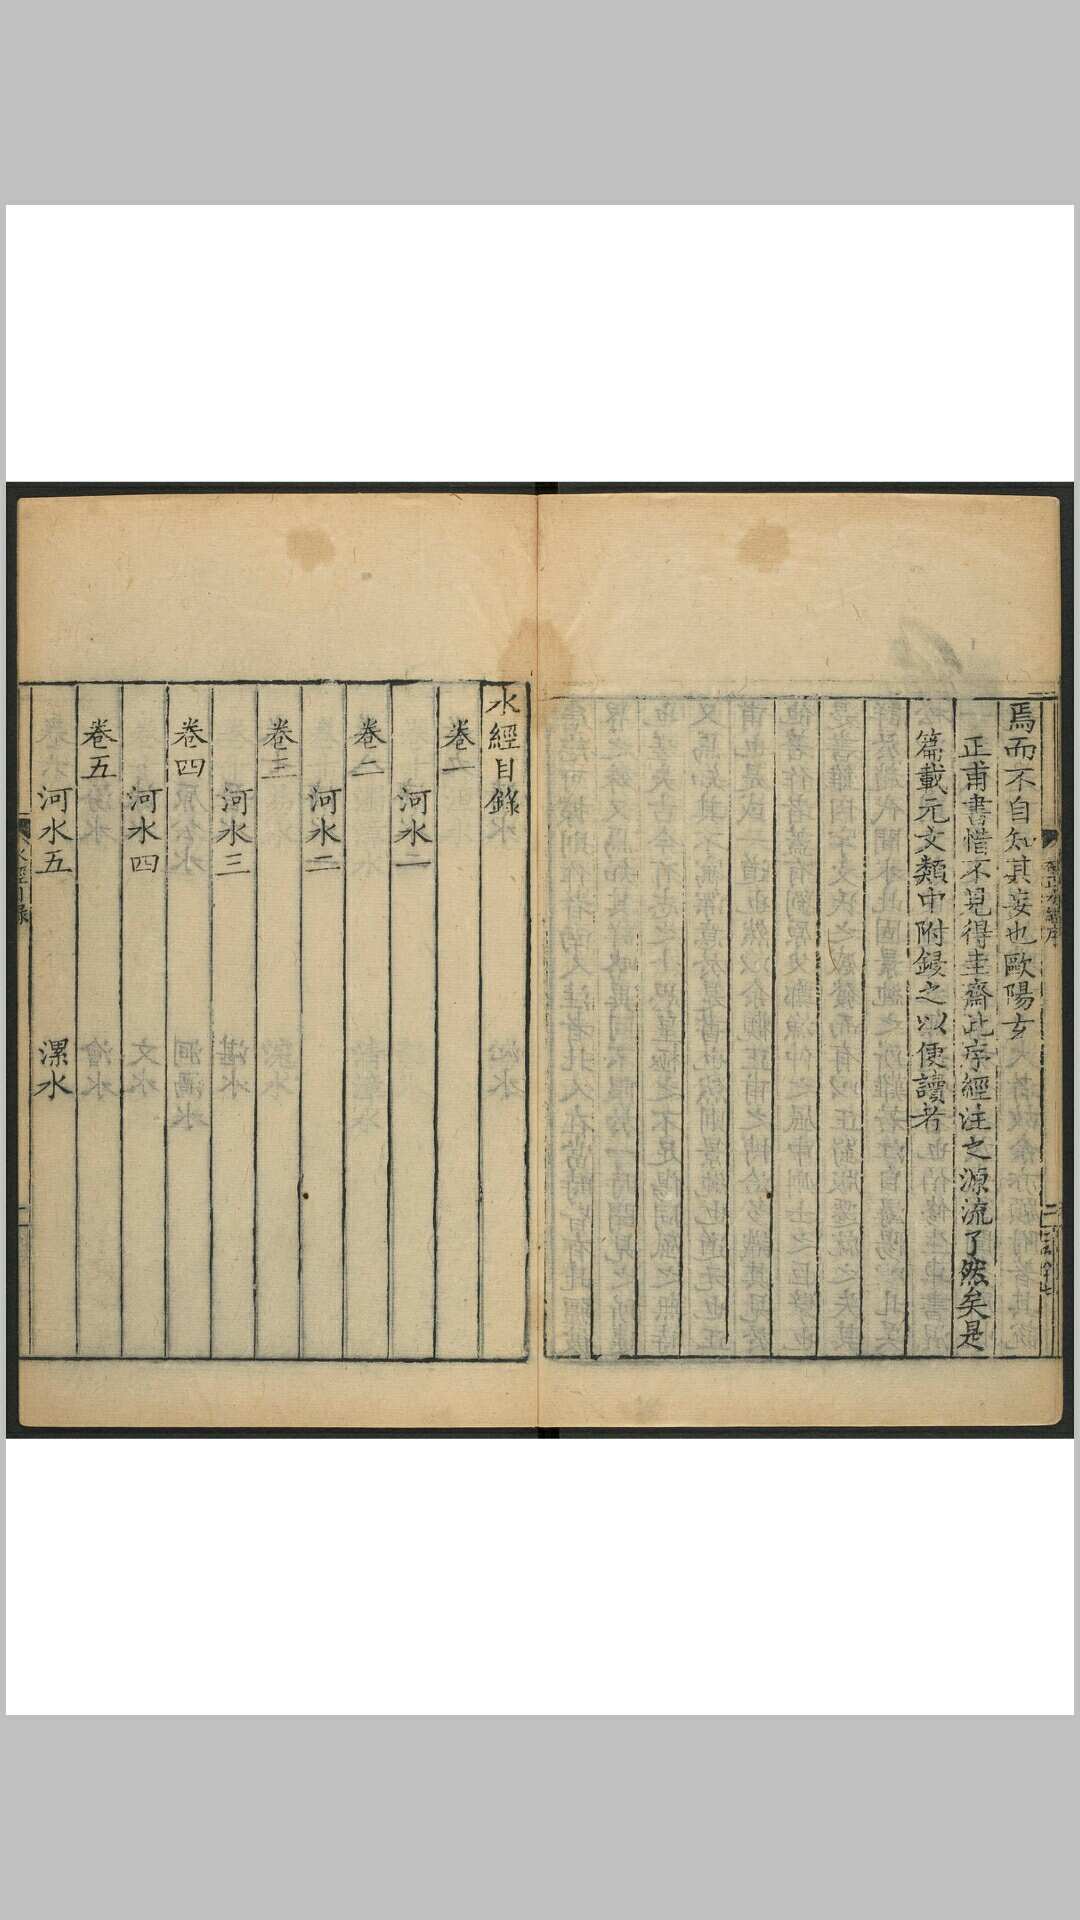 焉而不自知其妄也歐陽玄
正甫書惜不見得圭齋此序經注之源流了然矣是
篇載元文類中附錄之以便讀者
水經目錄
卷一
河水一
卷二
河水二
卷三
河水三
卷四
河水四
卷五
河水五 漯水
水經目錄